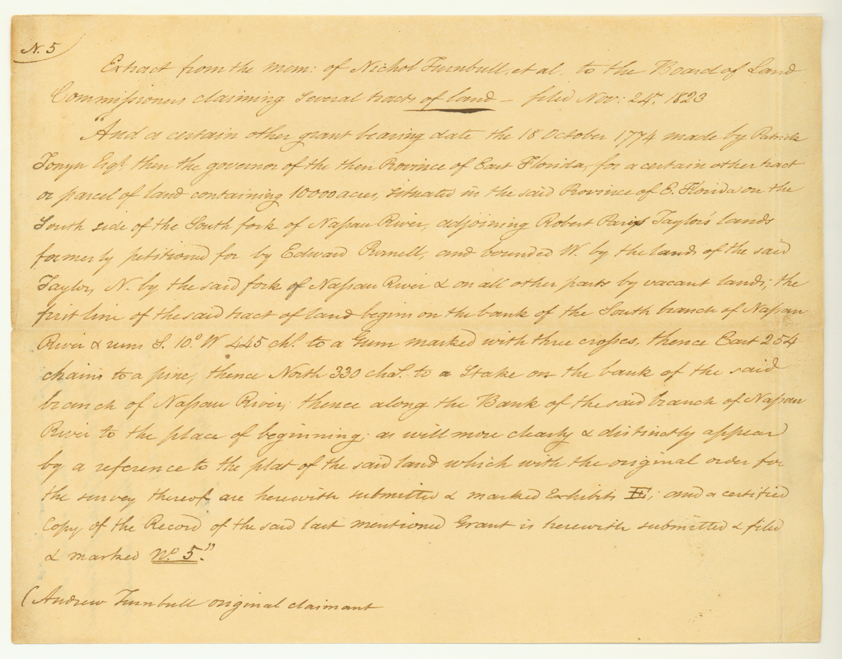 N. 5
Extract from the mem: of Nichol Turnbull, et al. to the Board of Land
Commissioners claiming several tracts of land – filed Nov: 24th. 1823
"And a certain other grant bearing date the 18 October 1774 made by Patrick
Tonyn Esqr. then the governor of the then Province of East Florida, for a certain other tract
or parcel of land containing 10000 acres, situated in the said Province of E. Florida on the
South side of the South fork of Nassau River, adjoining Robert Paris Taylor's lands
formerly petitioned for by Edward and bounded W. by the lands of the said
Taylor, N. by the said fork of Nassau River & on all other parts by vacant lands; the
first line of the said tract of land begins on the bank of the South branch of Nassau
River & runs S. 10° W 445 chs. to a Gum marked with three crosses, thence East 254
chains to a pine, thence North 330 chas. to a Stake on the bank of the said
branch of Nassau River; thence along the Bank of the said branch of Nassau
River to the place of beginning: as will more clearly & distinctly appear
by a reference to the plat of the said land which with the original order for
the survey thereof, are herewith submitted & marked Exhibits ; and a certified
Copy of the Record of the said last mentioned Grant is herewith submitted & filed
& marked No. 5."
(Andrew Turnbull original claimant